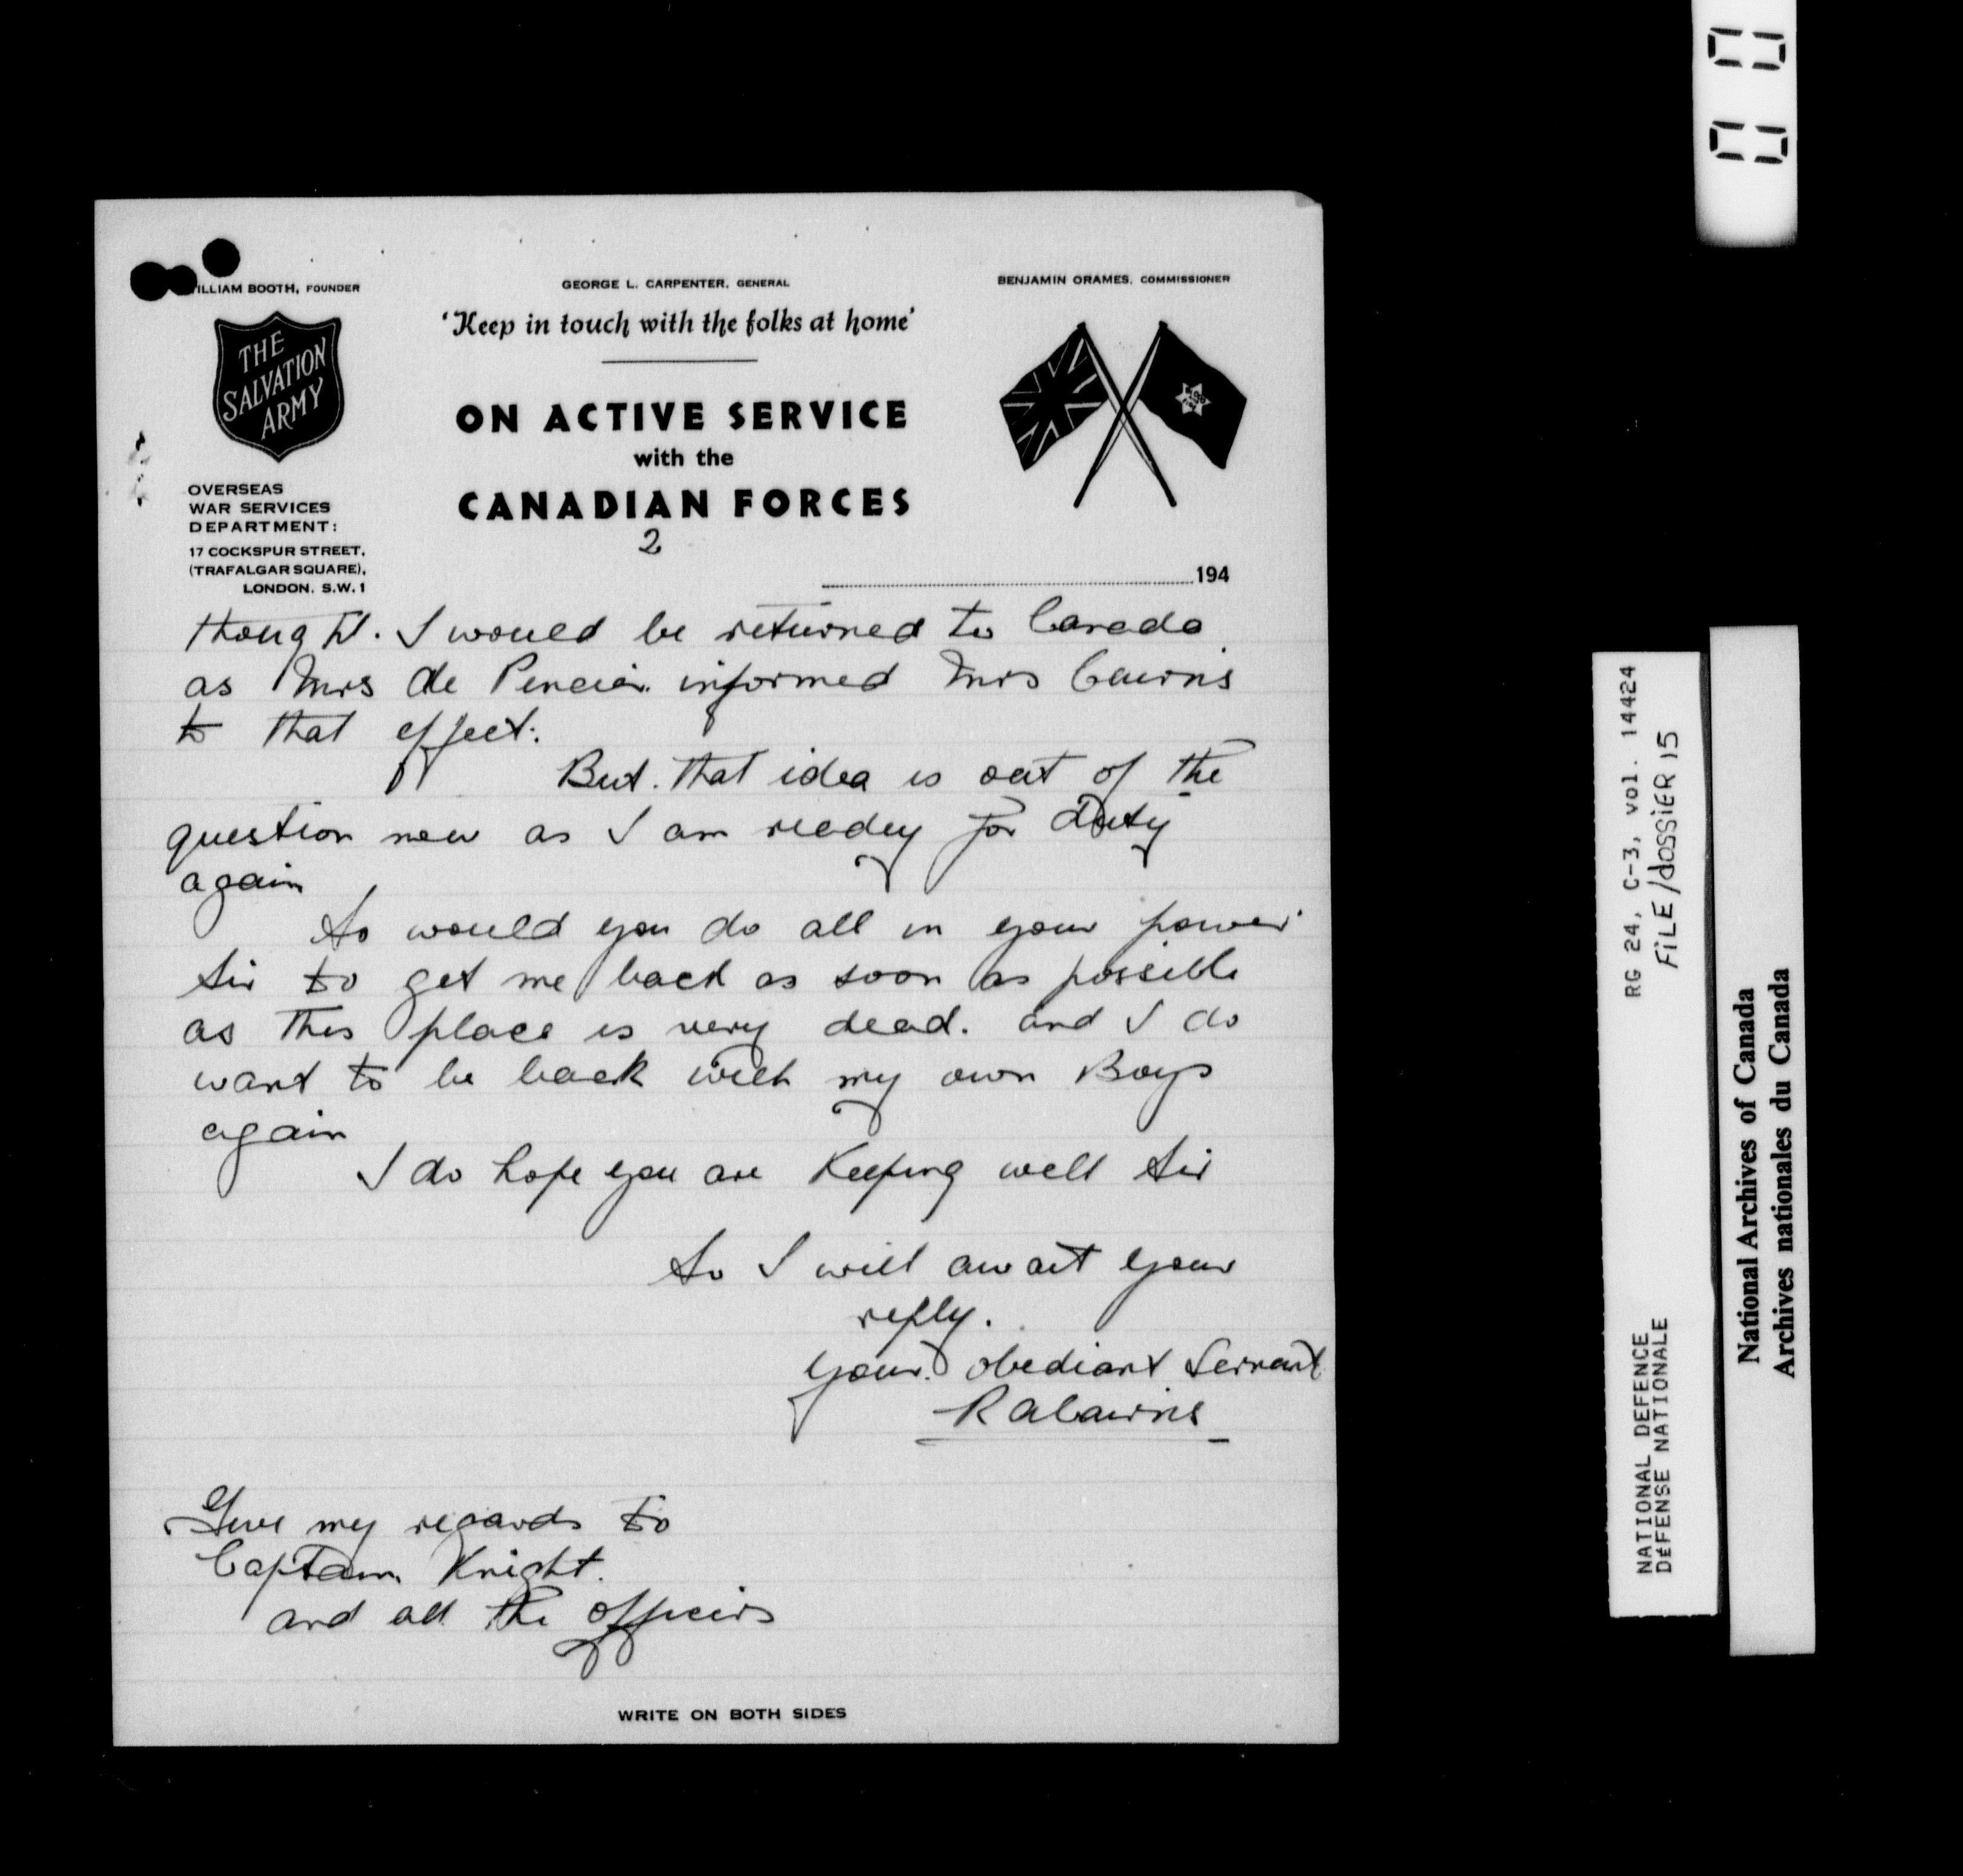 WILLIAM BOOTH, FOUNDER
GEORGE L. CARPENTER, GENERAL
BENJAMIN ORAMES, COMMISSIONER
'Keep in touch with the folks at home'
THE
SALVATION
ARMY
ON ACTIVE SERVICE
with the
CANADIAN FORCES
OVERSEAS
WAR SERVICES
DEPARTMENT:
17 COCKSPUR STREET,
(TRAFALGAR SQUARE),
LONDON. S.W.1
2
194
thought. I would be returned to Canada
as Mrs de Pencier informed Mrs Cairns
to that effect.
But that idea is out of the
question now as I am ready for Duty
again
So would you do all in your power
Sir to get me back as soon as possible
as this place is very dead. and I do
want to be back with my own Boys
again
I do hope you are Keeping well Sir
So I will await your
reply.
Your obediant Servant
R A Cairns
Give my regards to
Captain Knight.
and all the officers
WRITE ON BOTH SIDES
RG 24, C-3, vol. 14424
FiLE/dossiER 15
NATIONAL DEFENCE
DéFENSE NATIONALE
National Archives of Canada
Archives nationales du Canada